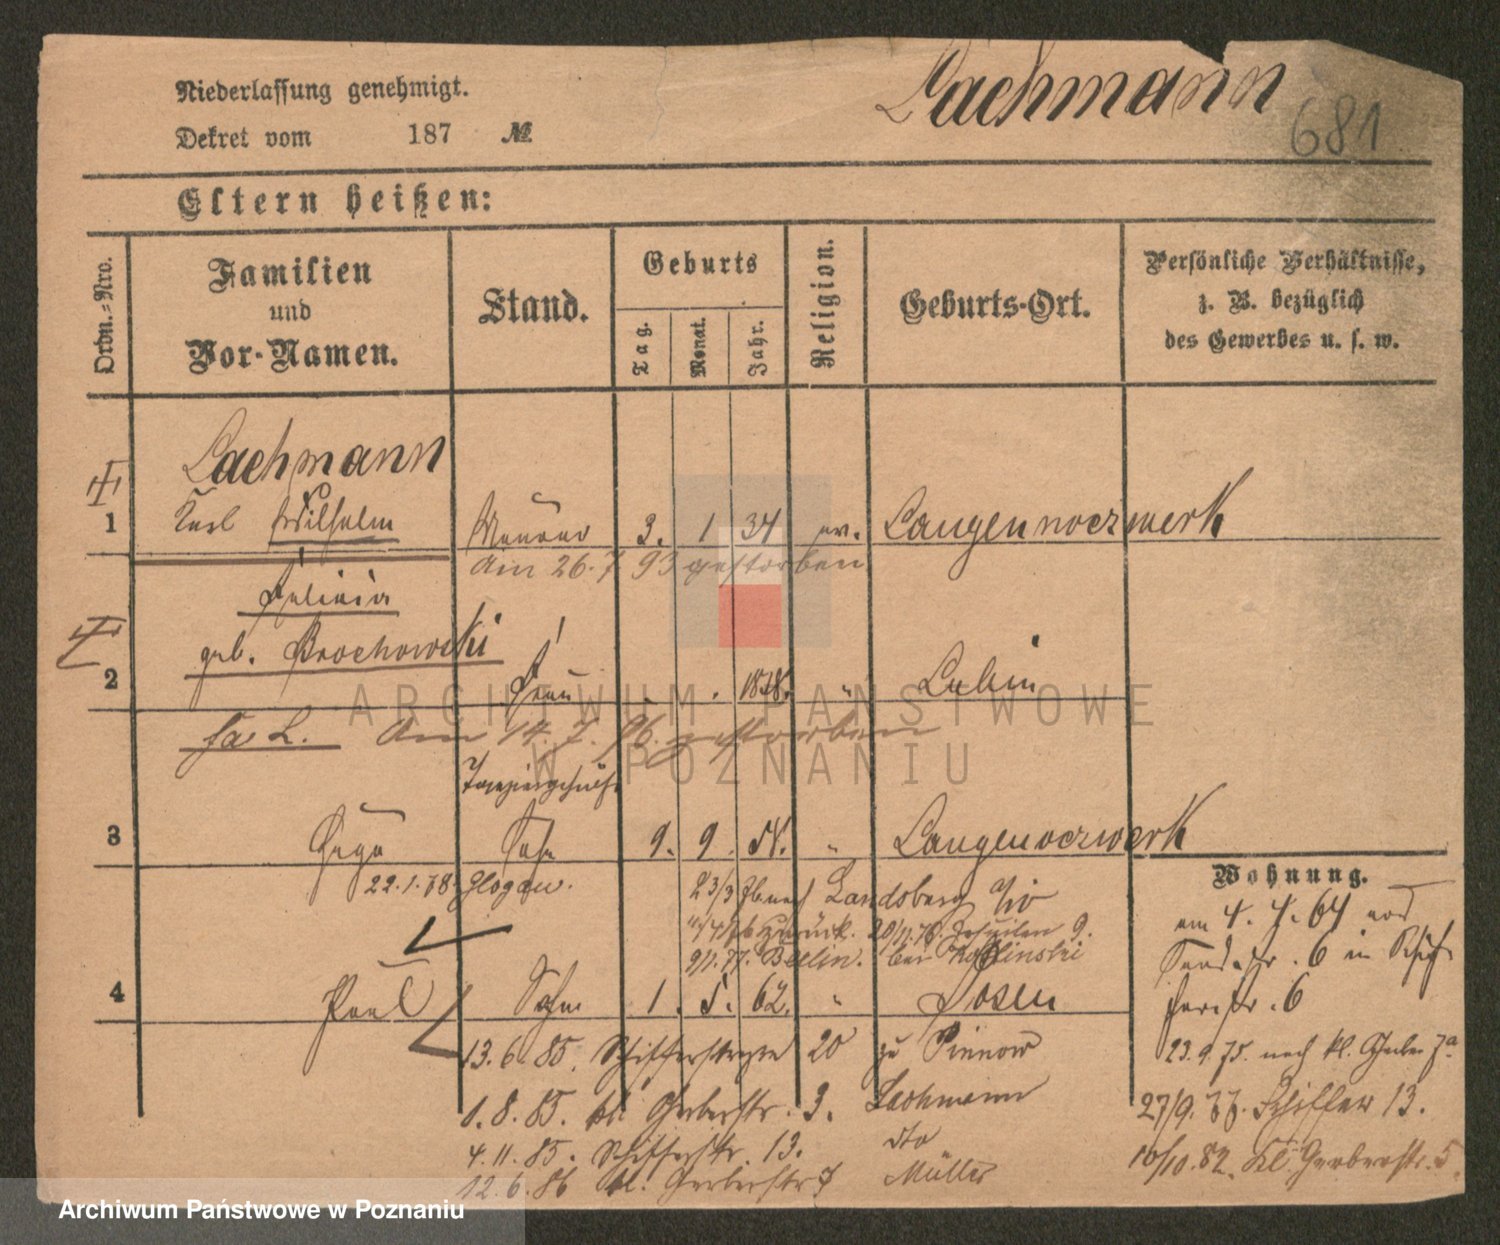 Lachmann
681
Niederlassung genehmigt.
Dekret vom 187 №
Eltern heißen:
Ordn.=Nro.
Familien
und
Vor-Namen.
Stand.
Geburts
Tag.
Monat.
Jahr.
Religion.
Geburts-Ort.
Persönliche Verhältnisse,
z. B. bezüglich
des Gewerbes u. s. w.
Lachmann
1 Karl Wilhelm Maurer 3. 1 34 ev. Langenvorwerk
Am 26. 7 93 gestorben
geb. Brochowski
2 Frau " Lubin
Am 14. 7. 96. gestorben
3 Hugo Sohn 9. 9. " Langenvorwerk
22.1.78. Glogau.
23/3 nach Landsberg a/W
zurück. 9.
Berlin. bei
4 Paul Sohn 1. 5. 62. " Posen
13. 6. 85. Schifferstrasse 20 zu Pinnow
1. 8. 85. kl. Gerberstr. 3. Lachmann
4. 11. 85. Schifferstr. 13. dto
12. 6. 86 kl. Gerberstr 7 Müller
Wohnung.
am 4. 4. 64 von
Sandstr. 6 in Schif-
ferstr. 6
23. 9. 75. nach kl. Gerber 7a
27/9. 77. Schiffer 13.
10/10. 82. Kl. Gerberstr. 5.
ARCHIWUM PAŃSTWOWE
W POZNANIU
Archiwum Państwowe w Poznaniu